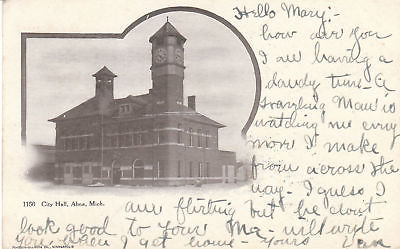 Hello Mary:-
how are you
I am having a
dandy time. A
travling Man is
watching me evry
move I make
from across the
way. I guess I
am flirting but he dont
look good to your Me- will wryte
you when I get home - yours
1156 City Hall, Alma, Mich.